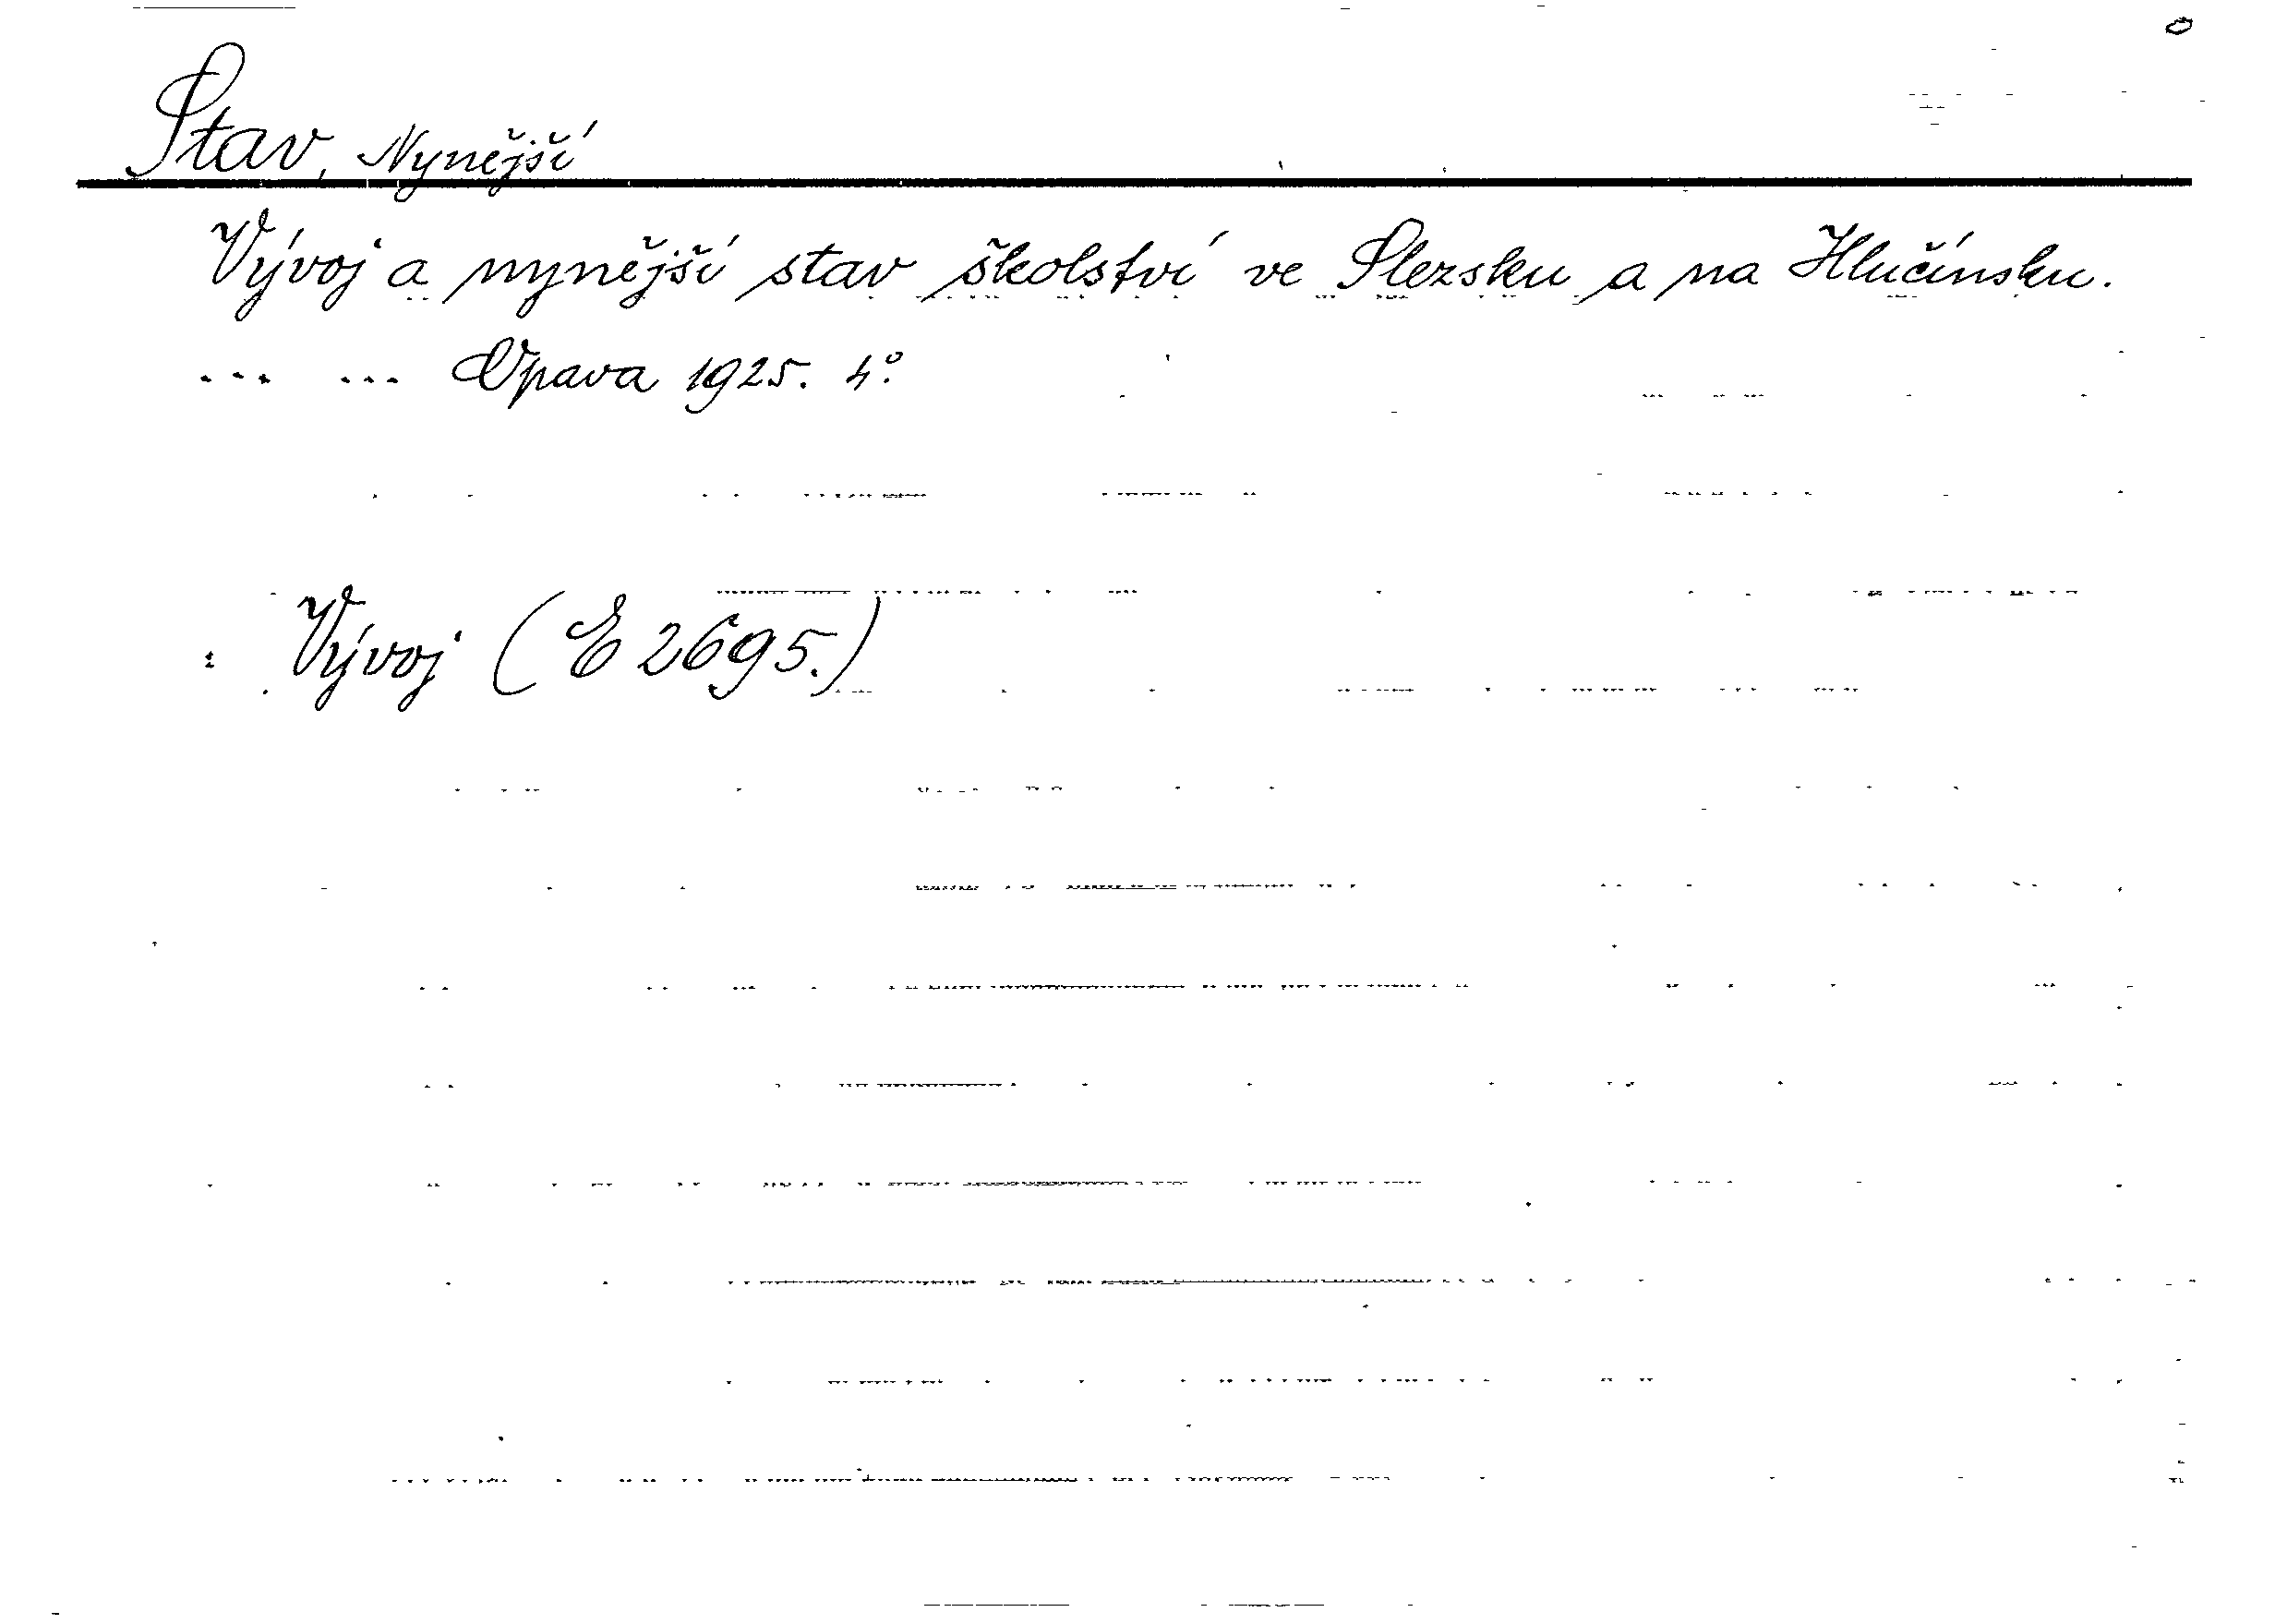 Stav, Nynější
Vývoj a nynější stav školství ve Slezsku a na Hlučínsku.
... ... Opava 1925. 4°.
: Vývoj (E 2695.)